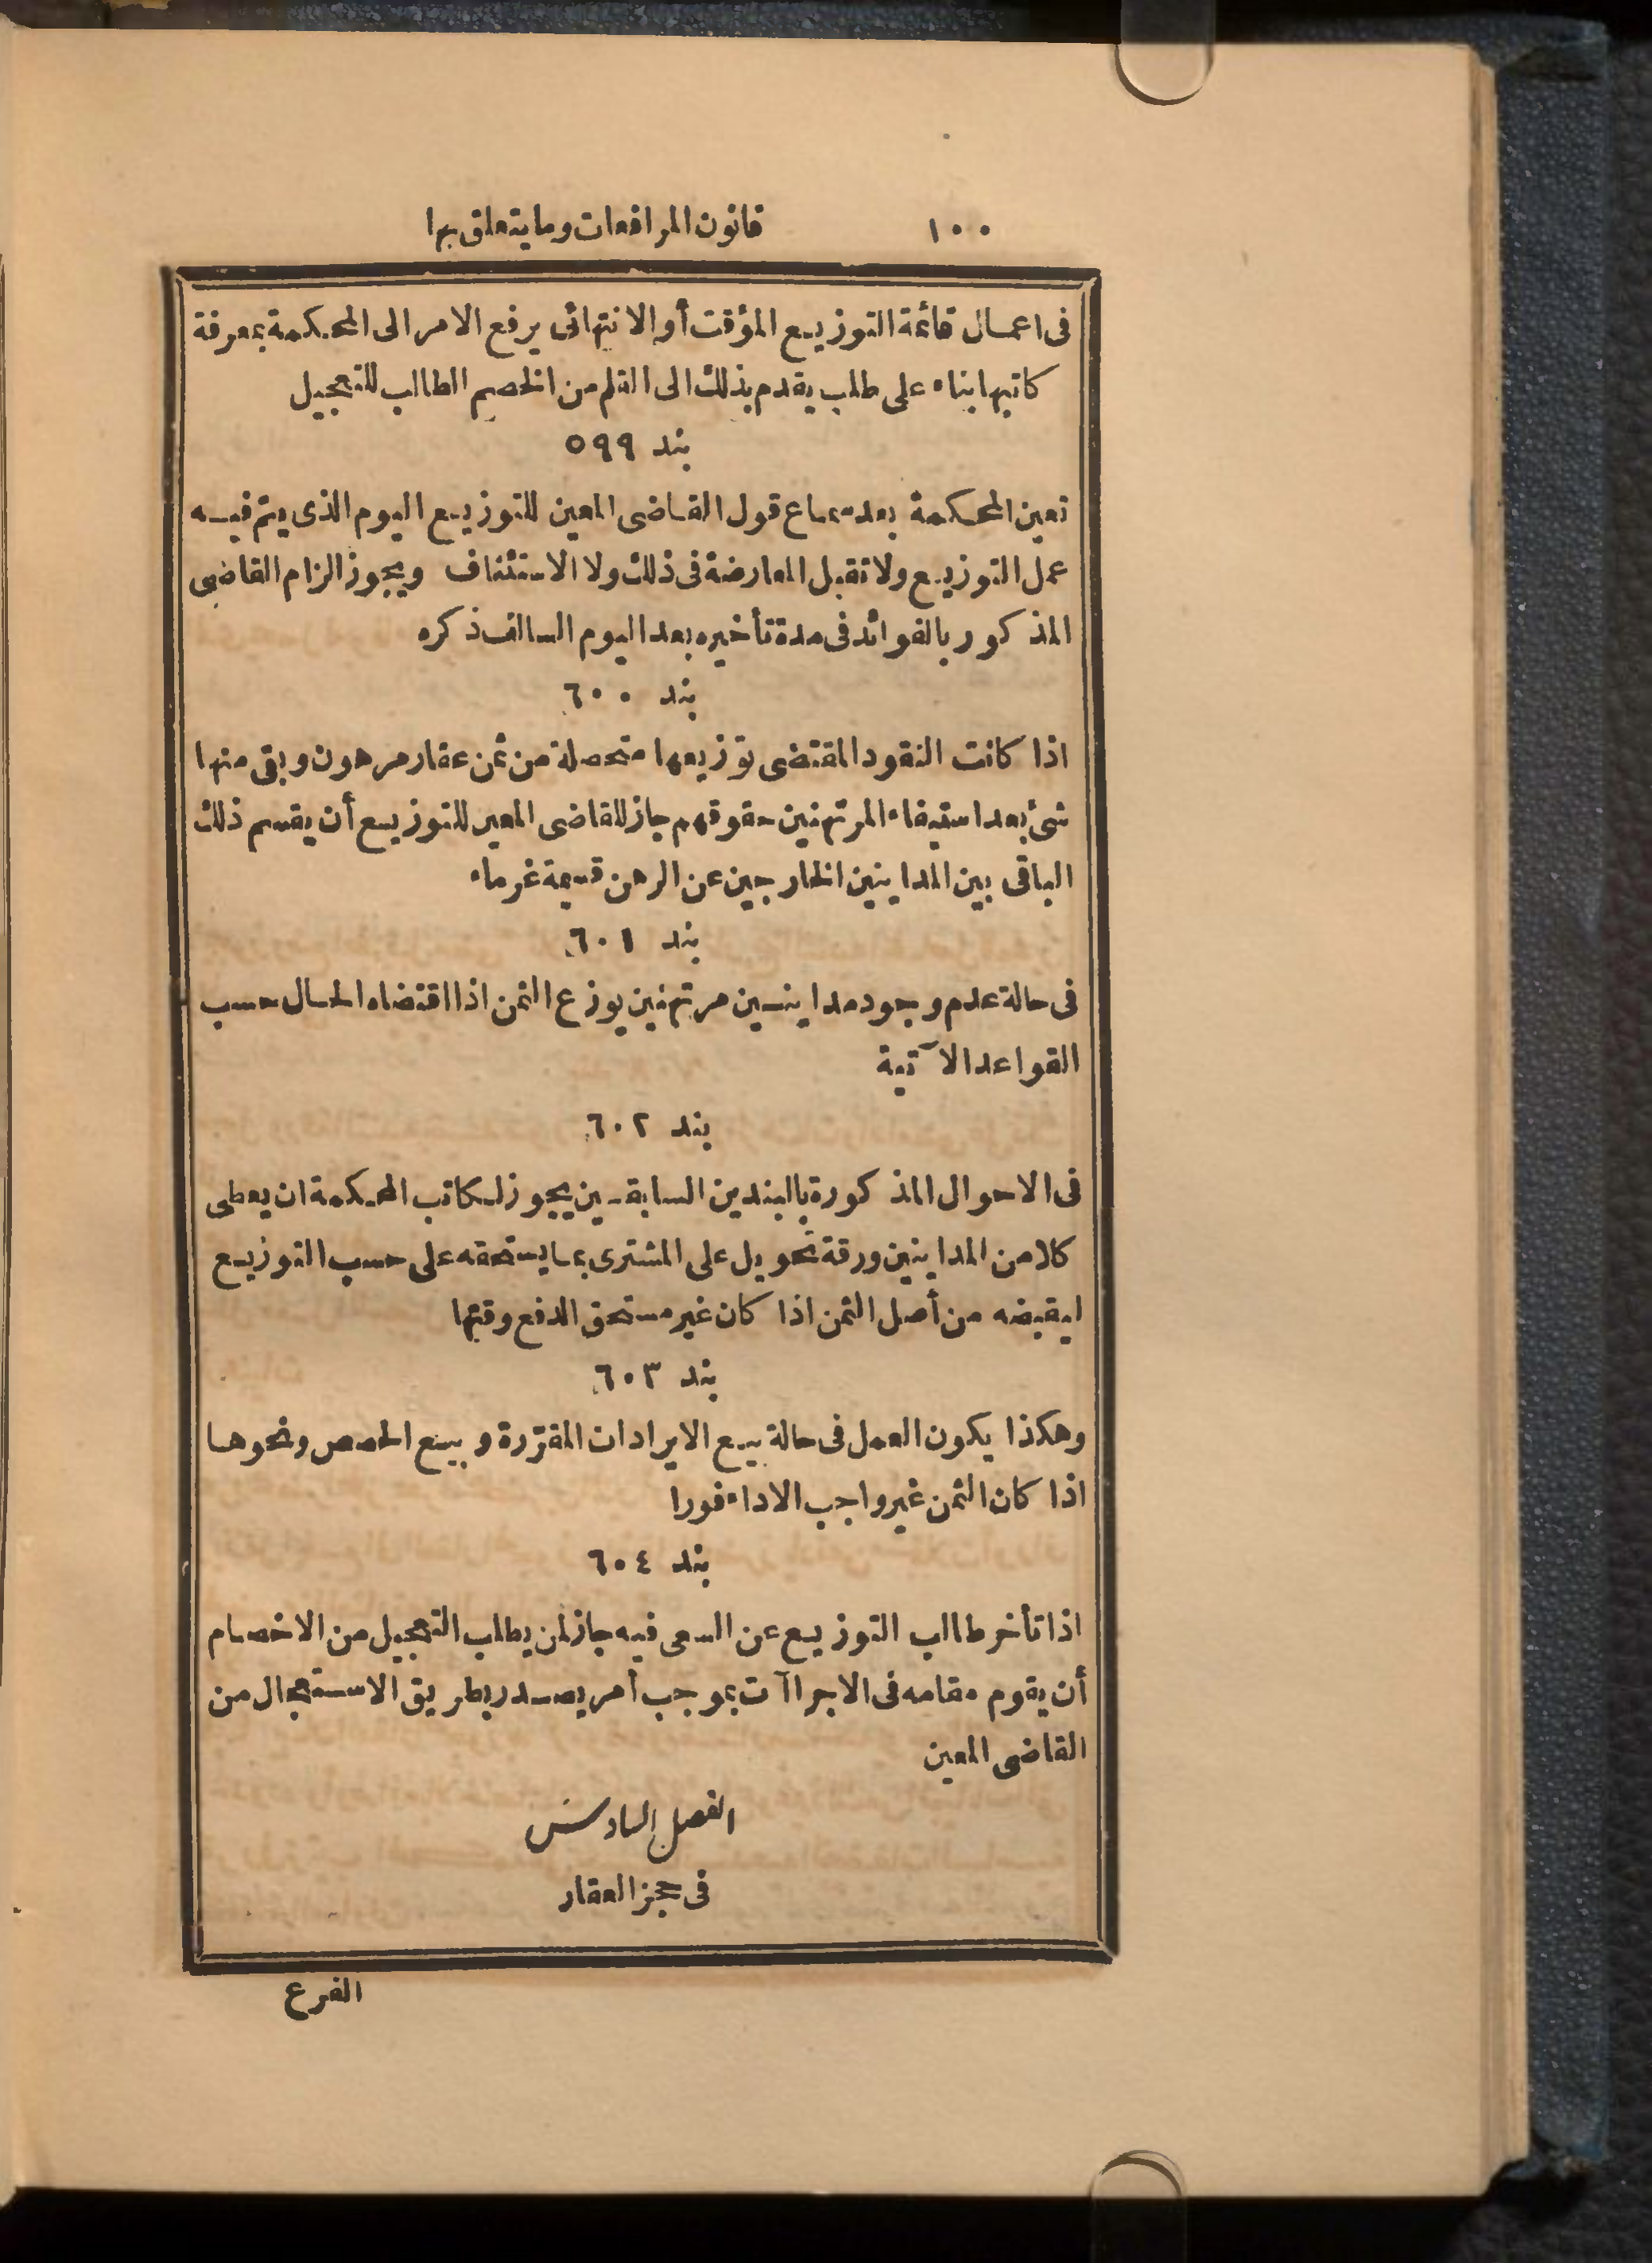 ١٠٠ قانون المرافعات وما يتعلق بها
فى اعمال قائمة التوزيع المؤقت أو الانتهائى يرفع الامر الى المحكمة بمعرفة
كاتبها بناء على طلب يقدم بذلك الى القلم من الخصم الطالب للتعجيل
بند ٥٩٩
تعين المحكمة بعد سماع قول القاضى المعين للتوزيع اليوم الذى يتم فيه
عمل التوزيع ولا تقبل المعارضة فى ذلك ولا الاستئناف ويجوز الزام القاضى
المذكور بالفوائد فى مدة تأخيره بعد اليوم السالف ذكره
بند ٦٠٠
اذا كانت النقود المقتضى توزيعها متحصلة من ثمن عقار مرهون وبقى منها
شئ بعد استيفاء المرتهنين حقوقهم جاز للقاضى المعين للتوزيع أن يقسم ذلك
الباقى بين المداينين الخارجين عن الرهن قسيمة غرماء
بند ٦٠١
فى حالة عدم وجود مداينين مرتهنين يوزع الثمن اذا اقتضاه الحال حسب
القواعد الآتية
بند ٦٠٢
فى الاحوال المذكورة بالبندين السابقين يجوز لكاتب المحكمة ان يعطى
كلا من المداينين ورقة تحويل على المشترى بما يستحقه على حسب التوزيع
ليقبضه من أصل الثمن اذا كان غير مستحق الدفع وقتها
بند ٦٠٣
وهكذا يكون العمل فى حالة بيع الايرادات المقررة وبيع الحصص ونحوها
اذا كان الثمن غير واجب الاداء فورا
بند ٦٠٤
اذا تأخر طالب التوزيع عن السعى فيه جاز لمن يطلب التعجيل من الاخصام
أن يقوم مقامه فى الاجراآت بموجب أمر يصدر بطريق الاستعجال من
القاضى المعين
الفصل السادس
فى حجز العقار
الفرع